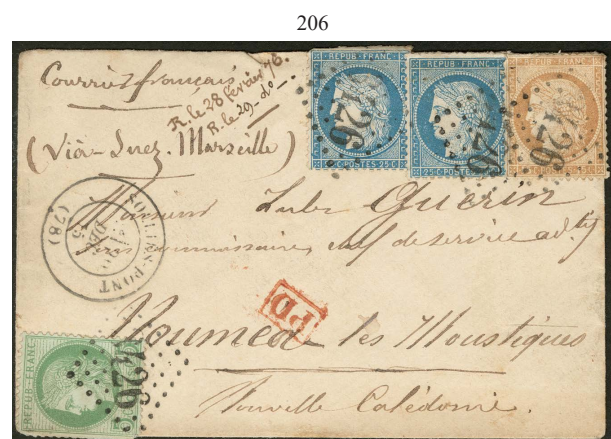 206
Courrier français
R. le 28 février 76.
R. le 29 - do -
(Viâ-Suez. Marseille)
REPUB·FRANC
25·C·POSTES·25·C
REPUB·FRANC
25·C·POSTES·25·C
REPUB·FRANC
426
426
426
SOLLIÈS-PONT
DEC.
75
(78)
Monsieur Jules Guerin
commissaire, chef de service adtif
PD
Noumea les Moustiques
Nouvelle Calédonie.
REPUB·FRANC
426